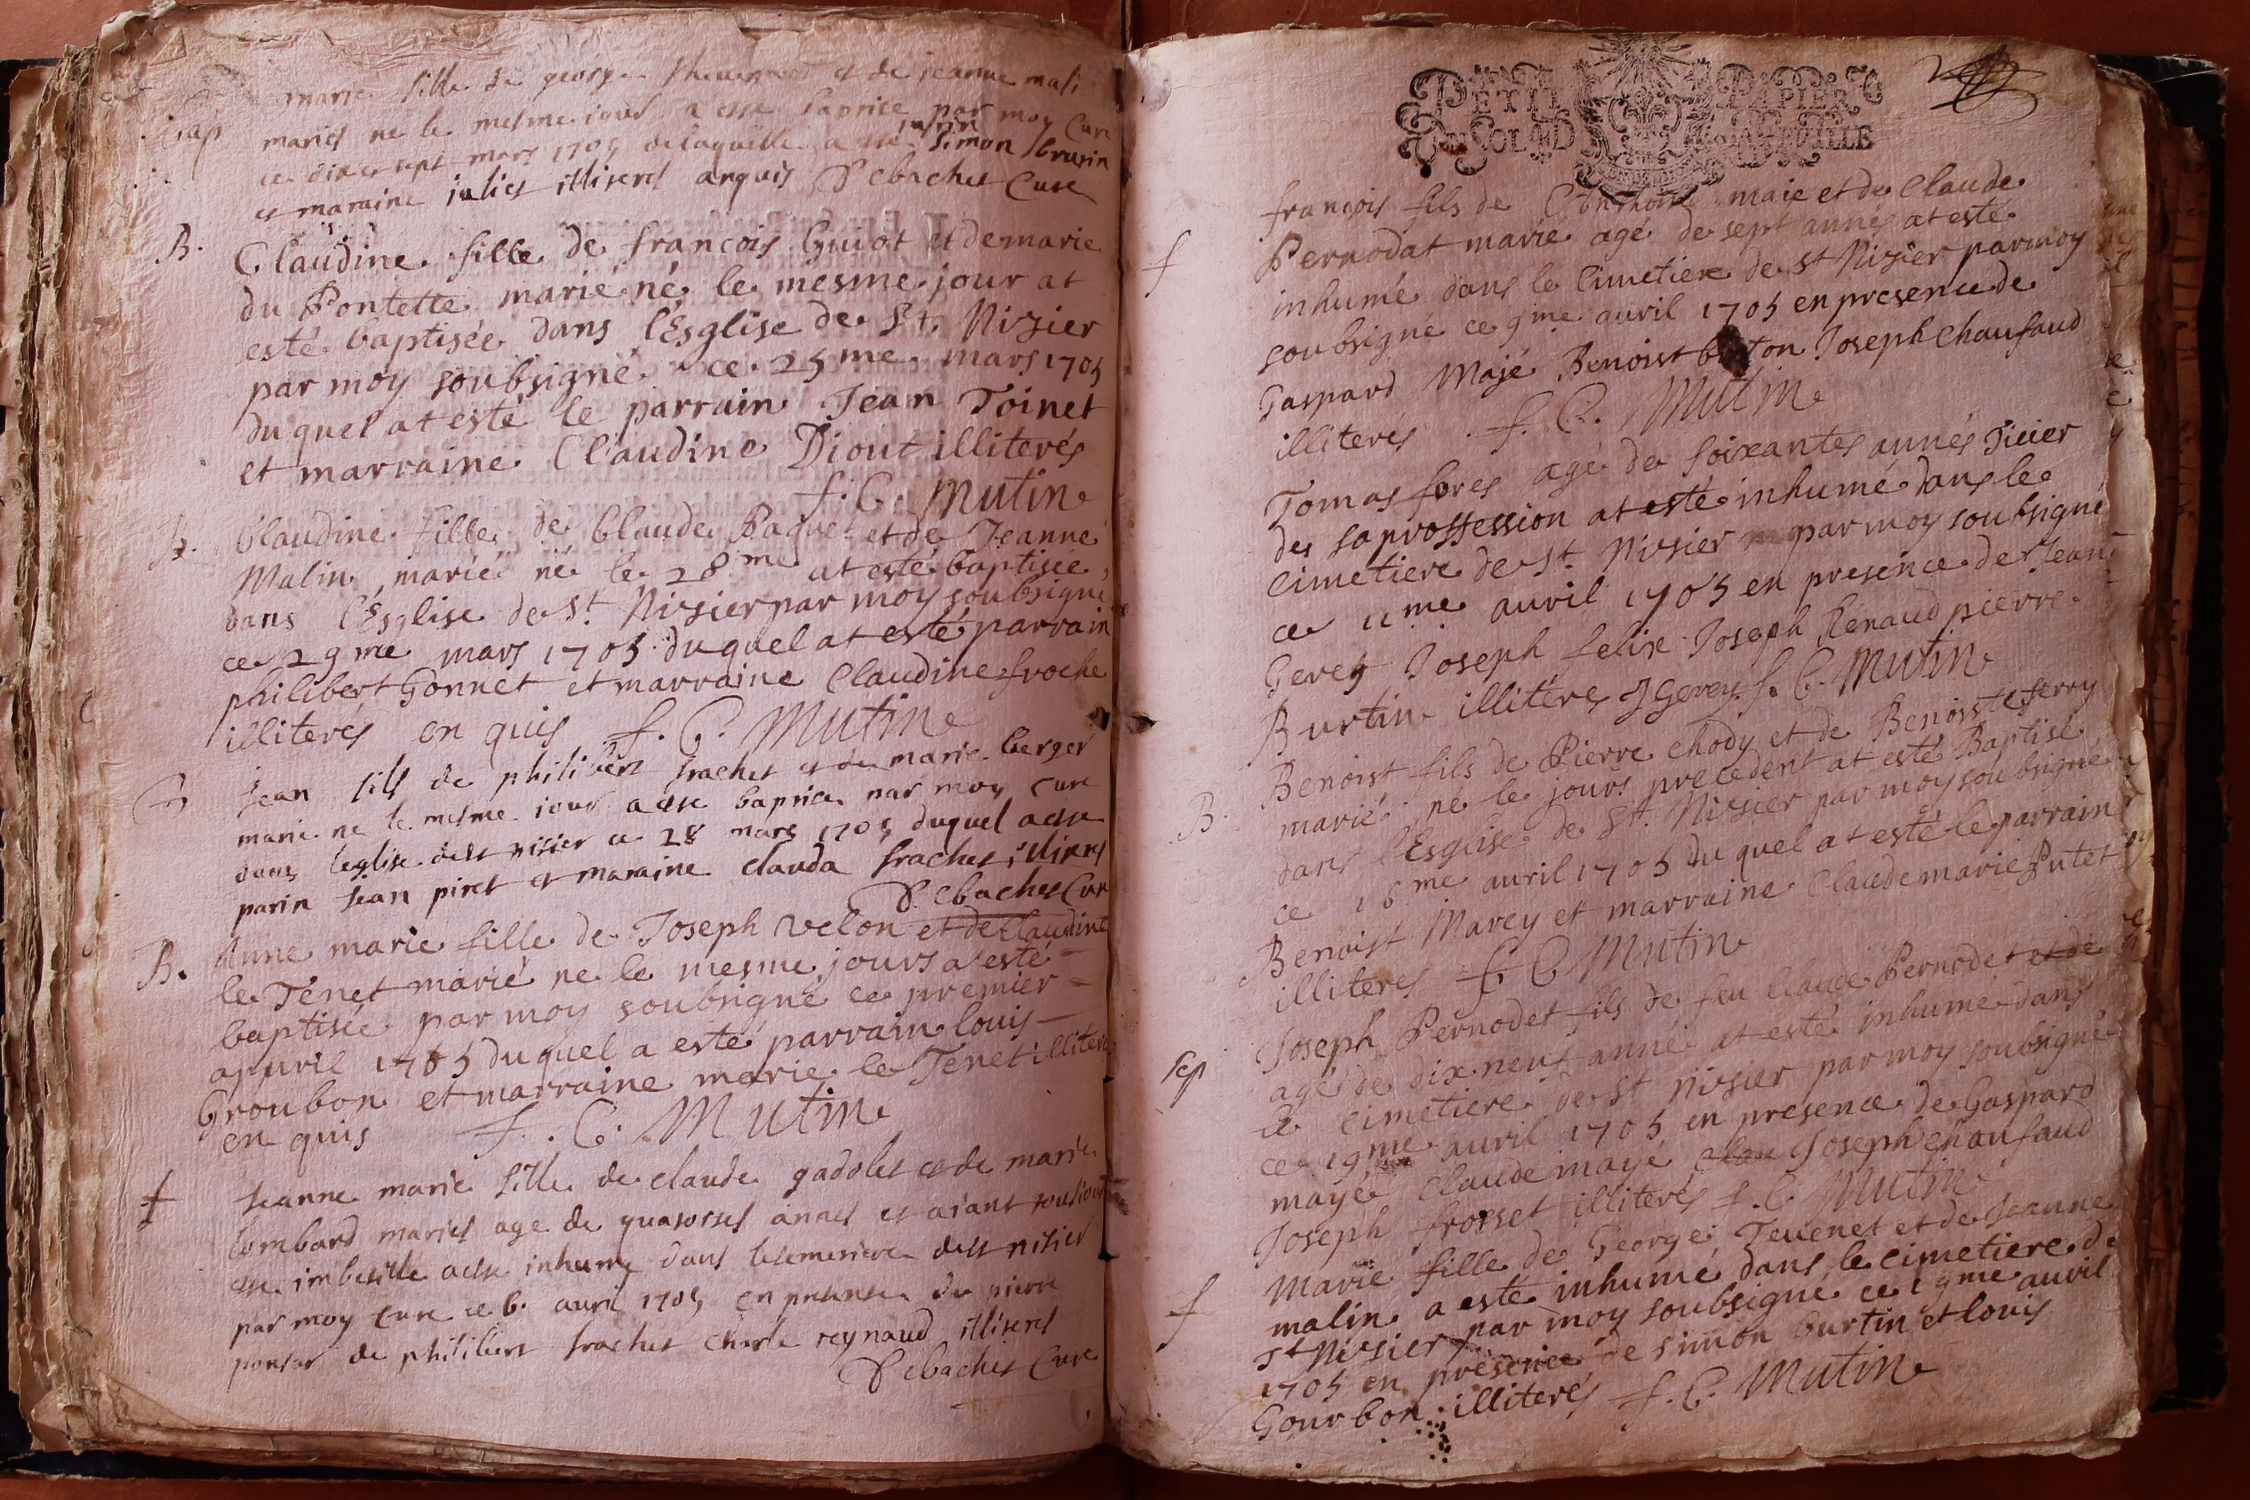 marie fille de george et de jeanne mali
Bap
maries ne le mesme iour a este baptise par moy Cure
ce dix et sept mars 1705 de laquelle a este parin simon
et maraine illiteres anquis Debachet Cure
B.
Claudine fille de francois Guiot et de marie
du Pontette marié né le mesme jour at
esté baptisée dans l'Esglise de St. Nizier
par moy soubsigné ce 25me mars 1705
duquel at esté le parrain Jean Toinet
et marraine Claudine Diout illiterés
f. C. Mutin
b.
Claudine fille de Claude Paquet et de Jeanne
Malin marié né le 28me at esté baptisée
dans l'Esglise de St. Nizier par moy soubsigne
ce 29me mars 1705 duquel at esté parrain
philibert Gonnet et marraine Claudine froche
illiterés en quis f. C. Mutin
B
Jean fils de philibert trachet et de marie berger
marie ne le mesme iour a este baptise par moy cure
dans leglise de st nisier ce 28 mars 1705 duquel a este
parin Jean piret et maraine clauda trachet illiteres
Debachet Cure
B.
Anne marie fille de Joseph velon et de Claudine
le Tenet marié ne le mesme jours a esté
baptisée par moy soubsigné ce premier
apuril 1705 duquel a esté parrain louis
Groubon et marraine marie le Tenet illiteré
en quis f. C. Mutin
†
Jeanne marie fille de claude gadolet et de marie
lombard maries age de quatorses annes et aiant tousiours
este imbesille a este inhume dans le semetiere de st nisier
par moy cure ce 6. auril 1705 en presense de pierre
ponsar de philibert trachet charle reynaud illiteres
Debachet Cure
PETIT PAPIER
UN SOL LA FEUILLE
francois fils de maie et de Claude
f
Pernodat marie age de sept annés at esté
inhumé dans le Cimetiere de St Nizier par moy
soubsigné ce 9me auril 1705 en presence de
Gaspard Majé Benoist Joseph Chaufaud
illiterés f. C. Mutin
Tomas fores agé de soixantes annés Ticier
des sa proffession at esté inhumé dans le
cimetiere de St. Nizier par moy soubsigné
ce 11me auril 1705 en presence de Jean
Gerey Joseph felix Joseph Renaud pierre
Burtin illiteres J Gerey f. C. Mutin
B.
Benoist fils de Pierre Chody et de Benoiste ferry
marié né le jours precedent at esté Baptisé
dans l'Esglise de St. Nizier par moy soubsigné
ce 16me auril 1705 du quel at esté le parrain
Benoist Marey et marraine Claude marie Putet
illiteres f. C. Mutin
Sep
Joseph Pernodet fils de feu Claude Pernodet et de
agé de dix-neuf anné at esté inhumé dans
le cimetiere de St Nizier par moy soubsigné
ce 19me auril 1705 en presence de Gaspard
mayé Claude mayé Joseph chaufaud
Joseph frosset illiterés f. C. Mutin
f
Marie fille de George Teuenet et de Jeanne
malin a esté inhumé dans le cimetiere de
St Nizier par moy soubsigné ce 19me auril
1705 en presence de simon burtin et louis
Gourbon illiterés f. C. Mutin